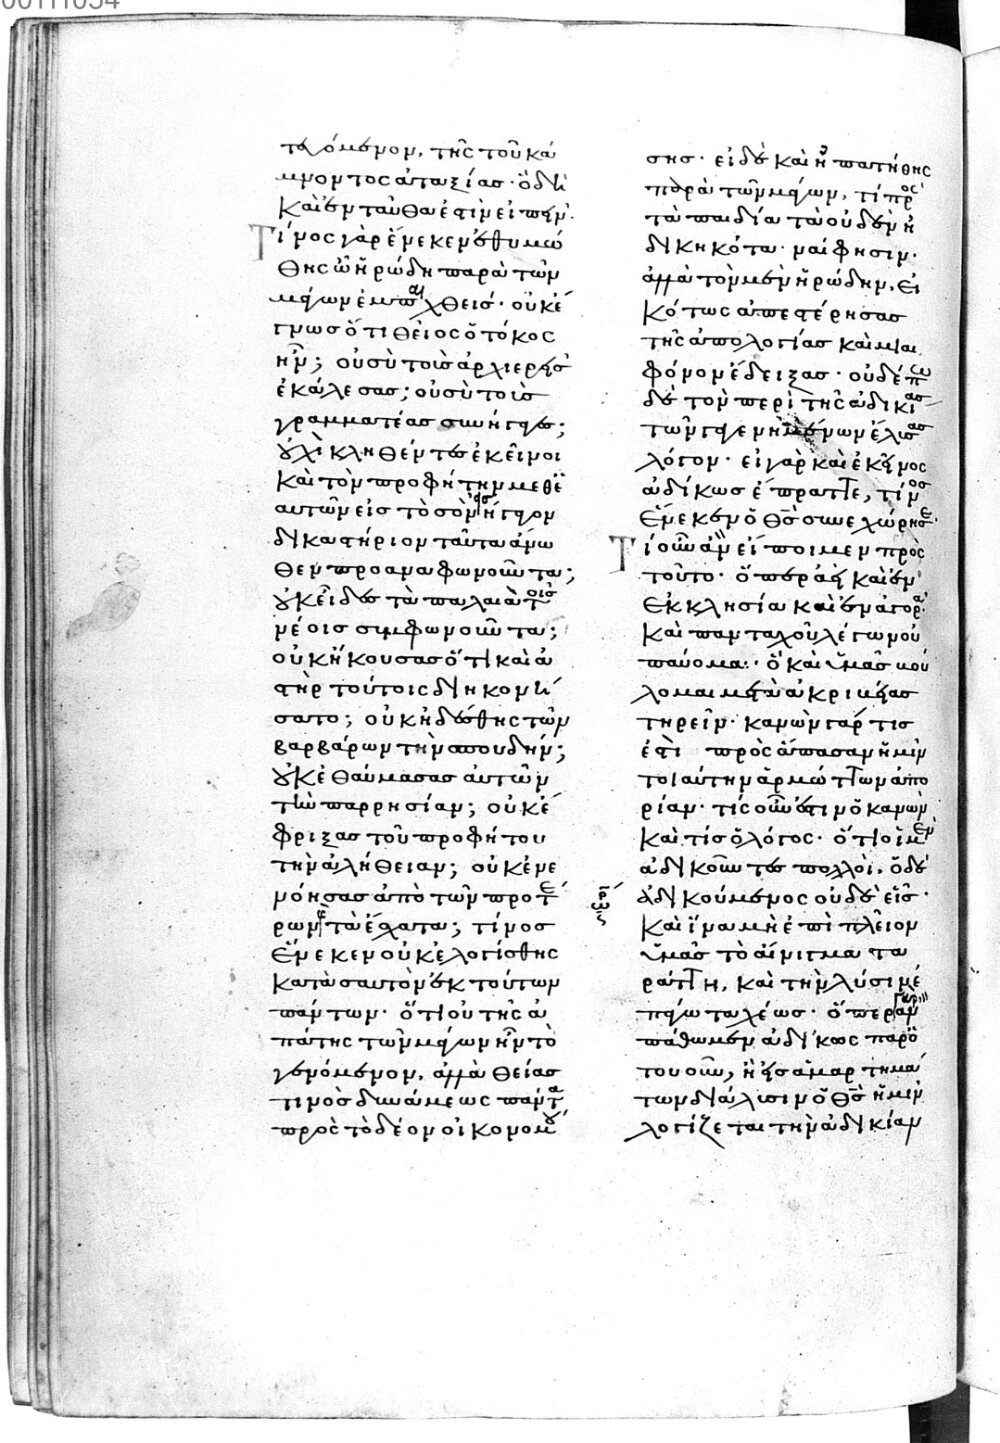 00111054
τελόμενον, τῆς τοῦ κά
μνοντος ἀταξίας· ὃ δὴ
καὶ ἐνταῦθα ἐστὶν εἰπεῖν.
Τίνος γὰρ ἕνεκεν ἐθυμώ
θης ὦ ἡρώδη παρὰ τῶν
μάγων ἐμπαιχθείς· οὐκ ἔ
γνως ὅτι θεῖος ὁ τόκος
ἦν; οὐ σὺ τοὺς ἀρχιερεῖς
ἐκάλεσας; οὐ σὺ τοὺς
γραμματέας συνήγαγες;
οὐχὶ κληθέντες ἐκεῖνοι
καὶ τὸν προφήτην μεθ' ἑ
αυτῶν εἰς τὸ σὸν εἰσήγαγον
δικαστήριον ταῦτα ἄνω
θεν προαναφωνοῦντα;
οὐκ εἶδες τὰ παλαιὰ τοῖς
νέοις συμφωνοῦντα;
οὐκ ἤκουσας ὅτι καὶ ἀ
στὴρ τούτοις διηκονή
σατο; οὐκ ᾐδέσθης τῶν
βαρβάρων τὴν σπουδήν;
οὐκ ἐθαύμασας αὐτῶν
τὴν παρρησίαν; οὐκ ἔ
φριξας τοῦ προφήτου
τὴν ἀλήθειαν; οὐκ ἐνε
νόησας ἀπὸ τῶν προτέ
ρων καὶ τὰ ἔσχατα; τίνος
ἕνεκεν οὐκ ἐλογίσθης
κατὰ σαυτὸν ἐκ τούτων
πάντων· ὅτι οὐ τῆς ἀ
πάτης τῶν μάγων ἦν τὸ
γενόμενον, ἀλλὰ θείας
τινὸς δυνάμεως πάντα
πρὸς τὸ δέον οἰκονομού
σης· εἰ δὲ καὶ ἠπατήθης
παρὰ τῶν μάγων, τί πρὸς
τὰ παιδία τὰ οὐδὲν ἠ
δικηκότα· ναί φησιν·
ἀλλὰ τὸν μὲν ἡρώδην, εἰ
κότως ἀπεστέρησας
τῆς ἀπολογίας καὶ μιαι
φόνον ἔδειξας· οὐδέπω
δὲ τὸν περὶ τῆς ἀδικίας
τῶν γεγενημένων ἔλυσας
λόγον· εἰ γὰρ καὶ ἐκεῖνος
ἀδίκως ἔπραττε, τίνος
ἕνεκεν ὁ θς συνεχώρησε·
Τί οὖν ἂν εἴποιμεν πρὸς
τοῦτο· ὅπερ ἀεὶ καὶ ἐν
ἐκκλησία καὶ ἐν ἀγορᾶ
καὶ πανταχοῦ λέγων οὐ
παύομαι· ὃ καὶ ὑμᾶς βού
λομαι μετὰ ἀκριβείας
τηρεῖν· κανὼν γάρ τις
ἐστὶ πρὸς ἅπασαν ἡμῖν
τοιαύτην ἁρμόττων ἀπο
ρίαν· τίς οὖν ἐστιν ὁ κανὼν
καὶ τίς ὁ λόγος· ὅτι οἱ μὲν
ἀδικοῦντες πολλοὶ, ὁ δὲ
ἀδικούμενος οὐδὲ εἷς·
καὶ ἵνα μὴ ἐπὶ πλεῖον
ὑμᾶς τὸ αἴνιγμα τα
ράττη, καὶ τὴν λύσιν ἐ
πάγω ταχέως· ὅπερ γὰρ ἂν
πάθωμεν ἀδίκως παρ' ὁ
τουοῦν, ἢ εἰς ἁμαρτημά
των διάλυσιν ὁ θς ἡμῖν
λογίζεται τὴν ἀδικίαν